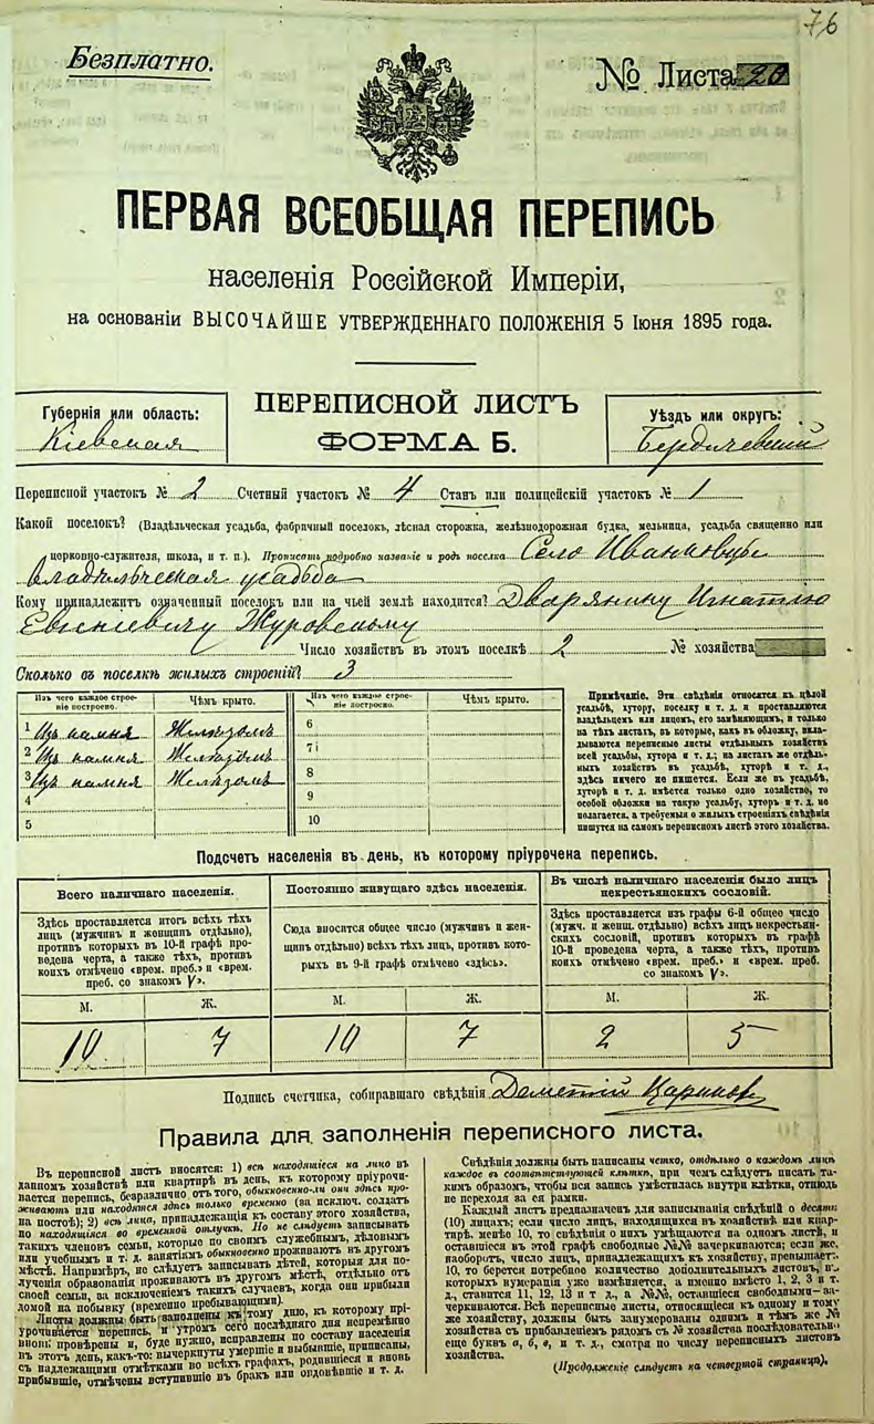 76
Безплатно.
№ Листа 20
ПЕРВАЯ ВСЕОБЩАЯ ПЕРЕПИСЬ
населенія Россійской Имперіи,
на основаніи ВЫСОЧАЙШЕ УТВЕРЖДЕННАГО ПОЛОЖЕНІЯ 5 Іюня 1895 года.
Губернія или область:
Кіевская
ПЕРЕПИСНОЙ ЛИСТЪ
ФОРМА Б.
Уѣздъ или округъ:
Бердичевскій
Переписной участокъ № 2 Счетный участокъ № 4 Станъ или полицейскій участокъ № 1
Какой поселокъ? (Владѣльческая усадьба, фабричный поселокъ, лѣсная сторожка, желѣзнодорожная будка, мельница, усадьба священно или
церковно-служителя, школа, и т. п.). Прописать подробно названіе и родъ поселка Село Иванковцы
владѣльческая усадьба
Кому принадлежитъ означенный поселокъ или на чьей землѣ находится? Дворянину Игнатію
Журовскому
Число хозяйствъ въ этомъ поселкѣ 2 № хозяйства
Сколько въ поселкѣ жилыхъ строеній? 3
Изъ чего каждое строеніе построено. Чѣмъ крыто. Изъ чего каждое строеніе построено. Чѣмъ крыто.
1 Изъ камня Желѣзомъ 6
2 Изъ камня Желѣзомъ 7
3 Изъ камня Желѣзомъ 8
4 9
5 10
Примѣчаніе. Эти свѣдѣнія относятся къ цѣлой
усадьбѣ, хутору, поселку и т. д. и проставляются
владѣльцемъ или лицомъ, его замѣняющимъ, и только
на тѣхъ листахъ, въ которые, какъ въ обложку, вкла-
дываются переписные листы отдѣльныхъ хозяйствъ
всей усадьбы, хутора и т. д.; на листахъ же отдѣль-
ныхъ хозяйствъ въ усадьбѣ, хуторѣ и т. д.,
здѣсь ничего не пишется. Если же въ усадьбѣ,
хуторѣ и т. д. имѣется только одно хозяйство, то
особой обложки на такую усадьбу, хуторъ и т. д. не
полагается, а требуемыя о жилыхъ строеніяхъ свѣдѣнія
пишутся на самомъ переписномъ листѣ этого хозяйства.
Подсчетъ населенія въ день, къ которому пріурочена перепись.
Всего наличнаго населенія.
Здѣсь проставляется итогъ всѣхъ тѣхъ
лицъ (мужчинъ и женщинъ отдѣльно),
противъ которыхъ въ 10-й графѣ про-
ведена черта, а также тѣхъ, противъ
коихъ отмѣчено «врем. преб.» и «врем.
преб. со знакомъ V».
Постоянно живущаго здѣсь населенія.
Сюда вносится общее число (мужчинъ и жен-
щинъ отдѣльно) всѣхъ тѣхъ лицъ, противъ кото-
рыхъ въ 9-й графѣ отмѣчено «здѣсь».
Въ числѣ наличнаго населенія было лицъ
некрестьянскихъ сословій.
Здѣсь проставляется изъ графы 6-й общее число
(мужч. и женщ. отдѣльно) всѣхъ лицъ некрестьян-
скихъ сословій, противъ которыхъ въ графѣ
10-й проведена черта, а также тѣхъ, противъ
коихъ отмѣчено «врем. преб.» и «врем. преб.
со знакомъ V».
М. Ж. М. Ж. М. Ж.
10 7 10 7 2 5
Подпись счетчика, собиравшаго свѣдѣнія
Правила для заполненія переписного листа.
Въ переписной листъ вносятся: 1) всѣ находящіеся на лицо въ
данномъ хозяйствѣ или квартирѣ въ день, къ которому пріурочи-
вается перепись, безразлично отъ того, обыкновенно-ли они здѣсь про-
живаютъ или находятся здѣсь только временно (за исключ. солдатъ
на постоѣ); 2) всѣ лица, принадлежащія къ составу этого хозяйства,
но находящіяся во временной отлучкѣ. Но не слѣдуетъ записывать
такихъ членовъ семьи, которые по своимъ служебнымъ, дѣловымъ
или учебнымъ и т. д. занятіямъ обыкновенно проживаютъ въ другомъ
мѣстѣ. Напримѣръ, не слѣдуетъ записывать дѣтей, которыя для по-
лученія образованія проживаютъ въ другомъ мѣстѣ, отдѣльно отъ
своей семьи, за исключеніемъ такихъ случаевъ, когда они прибыли
домой на побывку (временно пребывающими).
Листы должны быть заполнены къ тому дню, къ которому прі-
урочивается перепись, и утромъ сего послѣдняго дня непремѣнно
вновь провѣрены и, буде нужно, исправлены по составу населенія
въ этотъ день, какъ-то: вычеркнуты умершіе и выбывшіе, приписаны,
съ надлежащими отмѣтками во всѣхъ графахъ, родившіеся и вновь
прибывшіе, отмѣчены вступившіе въ бракъ или овдовѣвшіе и т. д.
Свѣдѣнія должны быть написаны четко, отдѣльно о каждомъ лицѣ
каждое въ соотвѣтствующей клѣткѣ, при чемъ слѣдуетъ писать та-
кимъ образомъ, чтобы вся запись умѣстилась внутри клѣтки, отнюдь
не переходя за ея рамки.
Каждый листъ предназначенъ для записыванія свѣдѣній о десяти
(10) лицахъ; если число лицъ, находящихся въ хозяйствѣ или квар-
тирѣ, менѣе 10, то свѣдѣнія о нихъ умѣщаются на одномъ листѣ, и
оставшіеся въ этой графѣ свободные №№ зачеркиваются; если же,
наоборотъ, число лицъ, принадлежащихъ къ хозяйству, превышаетъ
10, то берется потребное количество дополнительныхъ листовъ, въ
которыхъ нумерація уже измѣняется, а именно вмѣсто 1, 2, 3 и т.
д., ставится 11, 12, 13 и т д., а №№, оставшіеся свободными-за-
черкиваются. Всѣ переписные листы, относящіеся къ одному и тому
же хозяйству, должны быть занумерованы однимъ и тѣмъ же №
хозяйства съ прибавленіемъ рядомъ съ № хозяйства послѣдовательно
еще буквъ а, б, в, и т. д., смотря по числу переписныхъ листовъ
хозяйства.
(Продолженіе слѣдуетъ на четвертой страницѣ).